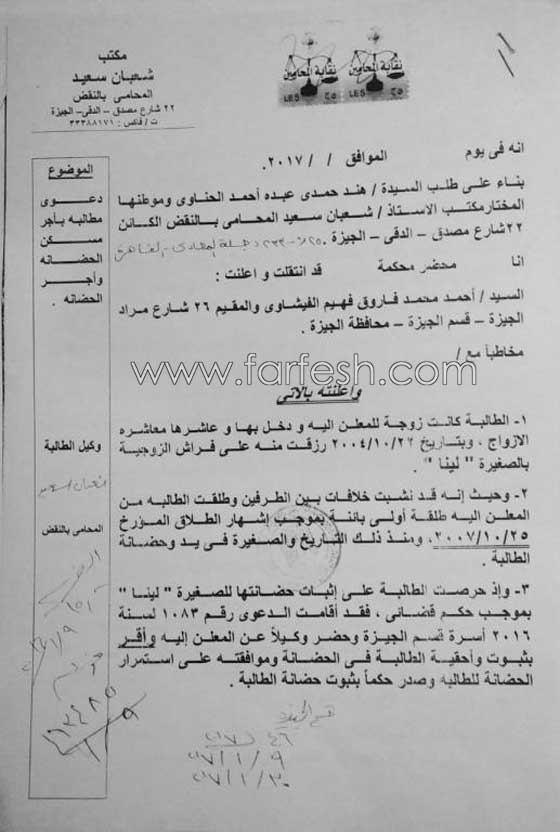 مكتب
شعبان سعيد
المحامى بالنقض
٢٢ شارع مصدق- الدقى- الجيزة
ت/ فاكس : ٣٣٣٨٨١٧١
نقابة المحامين
نقابة المحامين
انه فى يوم الموافق / / ٢٠١٧.
بناء على طلب السيدة / هند حمدى عبده أحمد الحناوى وموطنها
المختار مكتب الاستاذ / شعبان سعيد المحامى بالنقض الكائن
٢٢ شارع مصدق – الدقى – الجيزة .
انا محضر محكمة قد انتقلت و اعلنت :
السيد / أحمد محمد فاروق فهيم الفيشاوى والمقيم ٢٦ شارع مراد
الجيزة – قسم الجيزة – محافظة الجيزة .
مخاطباً مع /
www.farfesh.com
واعلنته بالآتى
١- الطالبة كانت زوجة للمعلن اليه و دخل بها و عاشرها معاشره
الازواج ، وبتاريخ ٢٠٠٤/١٠/٢٢ رزقت منه على فراش الزوجية
بالصغيرة " لينا " .
٢- وحيث إنه قد نشبت خلافات بين الطرفين وطلقت الطالبه من
المعلن اليه طلقة أولى بائنة بموجب إشهار الطلاق المؤرخ
٢٠٠٧/١٠/٢٥، ومنذ ذلك التاريخ والصغيرة فى يد وحضانة
الطالبة .
٣- وإذ حرصت الطالبة على إثبات حضانتها للصغيرة " لينا "
بموجب حكم قضائى ، فقد أقامت الدعوى رقم ١٠٨٣ لسنة
٢٠١٦ أسرة قسم الجيزة وحضر وكيلاً عن المعلن إليه وأقر
بثبوت وأحقية الطالبة فى الحضانة وموافقته على استمرار
الحضانة للطالبه وصدر حكماً بثبوت حضانة الطالبة .
الموضوع
دعوى
مطالبه بأجر
مسكن
الحضانه
وأجر
الحضانه .
وكيل الطالبة
المحامى بالنقض